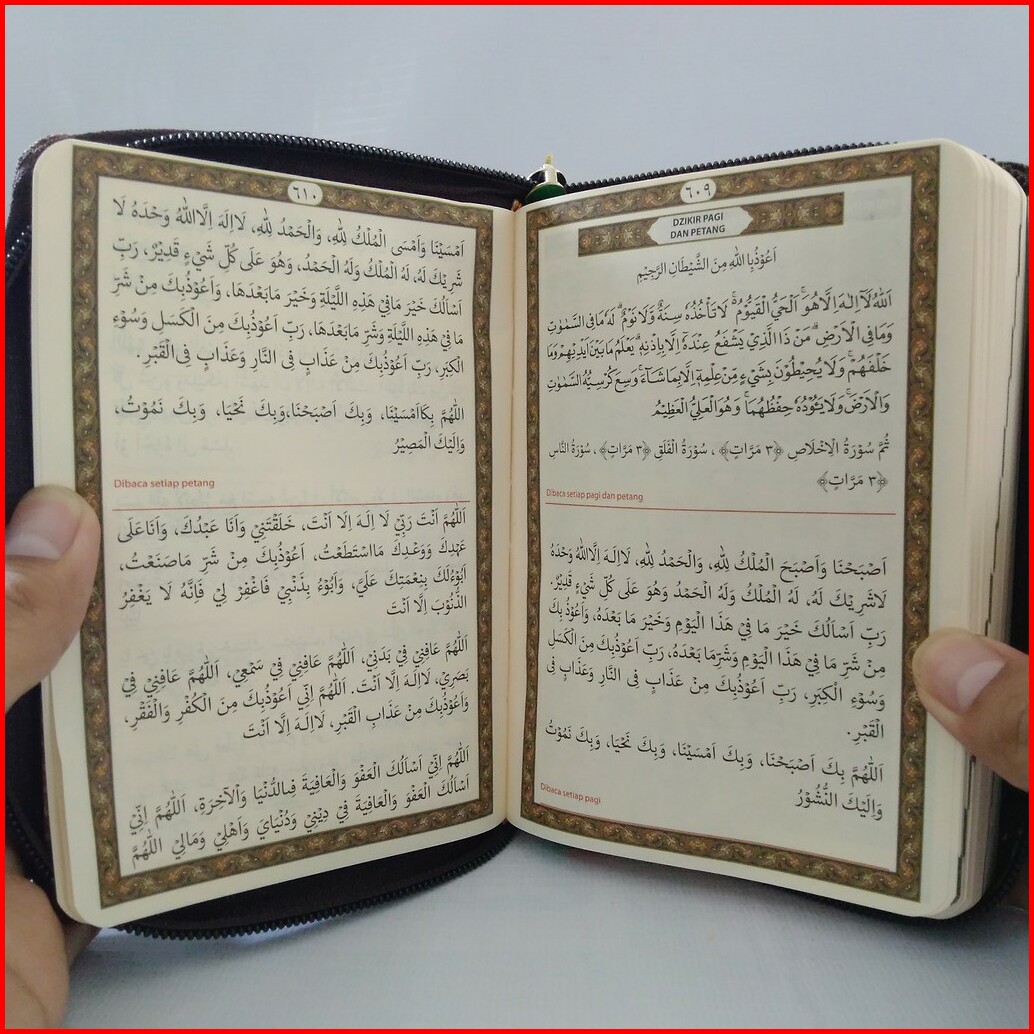 ٦٠٩
DZIKIR PAGI
DAN PETANG
اَعُوْذُ بِا اللهِ مِنَ الشَّيْطَانِ الرَّجِيْمِ
اَللهُ لَآ اِلٰهَ اِلَّا هُوَۚ اَلْحَيُّ الْقَيُّوْمُ ەۚ لَا تَأْخُذُهٗ سِنَةٌ وَّلَا نَوْمٌۗ لَهٗ مَا فِى السَّمٰوٰتِ
وَمَا فِى الْاَرْضِۗ مَنْ ذَا الَّذِيْ يَشْفَعُ عِنْدَهٗٓ اِلَّا بِاِذْنِهٖۗ يَعْلَمُ مَا بَيْنَ اَيْدِيْهِمْ وَمَا
خَلْفَهُمْۚ وَلَا يُحِيْطُوْنَ بِشَيْءٍ مِّنْ عِلْمِهٖٓ اِلَّا بِمَا شَاۤءَۚ وَسِعَ كُرْسِيُّهُ السَّمٰوٰتِ
وَالْاَرْضَۚ وَلَا يَـُٔوْدُهٗ حِفْظُهُمَاۚ وَهُوَ الْعَلِيُّ الْعَظِيْمُ
ثُمَّ سُوْرَةُ الْاِخْلَاصِ ﴿٣ مَرَّاتٍ﴾ ، سُوْرَةُ الْفَلَقِ ﴿٣ مَرَّاتٍ﴾ ، سُوْرَةُ النَّاسِ
﴿٣ مَرَّاتٍ﴾
Dibaca setiap pagi dan petang
اَصْبَحْنَا وَاَصْبَحَ الْمُلْكُ لِلّٰهِ، وَالْحَمْدُ لِلّٰهِ، لَااِلٰهَ اِلَّااللهُ وَحْدَهُ
لَاشَرِيْكَ لَهُ، لَهُ الْمُلْكُ وَلَهُ الْحَمْدُ وَهُوَ عَلَى كُلِّ شَيْءٍ قَدِيْرٌ.
رَبِّ اَسْأَلُكَ خَيْرَ مَا فِيْ هَذَا الْيَوْمِ وَخَيْرَ مَا بَعْدَهُ، وَاَعُوْذُ بِكَ
مِنْ شَرِّ مَا فِيْ هَذَا الْيَوْمِ وَشَرِّمَا بَعْدَهُ، رَبِّ اَعُوْذُبِكَ مِنَ الْكَسَلِ
وَسُوْءِ الْكِبَرِ، رَبِّ اَعُوْذُبِكَ مِنْ عَذَابٍ فِى النَّارِ وَعَذَابٍ فِى
الْقَبْرِ.
اَللّٰهُمَّ بِكَ اَصْبَحْنَا، وَبِكَ اَمْسَيْنَا، وَبِكَ نَحْيَا، وَبِكَ نَمُوْتُ
وَاِلَيْكَ النُّشُوْرُ
Dibaca setiap pagi
٦١٠
اَمْسَيْنَا وَاَمْسَى الْمُلْكُ لِلّٰهِ، وَالْحَمْدُ لِلّٰهِ، لَااِلٰهَ اِلَّااللهُ وَحْدَهُ لَا
شَرِيْكَ لَهُ، لَهُ الْمُلْكُ وَلَهُ الْحَمْدُ، وَهُوَ عَلَى كُلِّ شَيْءٍ قَدِيْرٌ، رَبِّ
اَسْأَلُكَ خَيْرَ مَافِيْ هَذِهِ اللَّيْلَةِ وَخَيْرَ مَابَعْدَهَا، وَاَعُوْذُبِكَ مِنْ شَرِّ
مَا فِيْ هَذِهِ اللَّيْلَةِ وَشَرِّ مَابَعْدَهَا، رَبِّ اَعُوْذُبِكَ مِنَ الْكَسَلِ وَسُوْءِ
الْكِبَرِ، رَبِّ اَعُوْذُبِكَ مِنْ عَذَابٍ فِى النَّارِ وَعَذَابٍ فِى الْقَبْرِ.
اَللّٰهُمَّ بِكَااَمْسَيْنَا، وَبِكَ اَصْبَحْنَا،وَبِكَ نَحْيَا، وَبِكَ نَمُوْتُ،
وَاِلَيْكَ الْمَصِيْرُ
Dibaca setiap petang
اَللّٰهُمَّ اَنْتَ رَبِّيْ لَا اِلٰهَ اِلَّا اَنْتَ، خَلَقْتَنِيْ وَاَنَا عَبْدُكَ، وَاَنَاعَلَى
عَهْدِكَ وَوَعْدِكَ مَااسْتَطَعْتُ، اَعُوْذُبِكَ مِنْ شَرِّ مَاصَنَعْتُ،
اَبُوْءُلَكَ بِنِعْمَتِكَ عَلَيَّ، وَاَبُوْءُ بِذَنْبِيْ فَاغْفِرْ لِيْ فَاِنَّهُ لَا يَغْفِرُ
الذُّنُوْبَ اِلَّا اَنْتَ
اَللّٰهُمَّ عَافِنِيْ فِيْ بَدَنِيْ، اَللّٰهُمَّ عَافِنِيْ فِيْ سَمْعِيْ، اَللّٰهُمَّ عَافِنِيْ فِيْ
بَصَرِيْ، لَااِلٰهَ اِلَّا اَنْتَ. اَللّٰهُمَّ اِنِّيْ اَعُوْذُبِكَ مِنَ الْكُفْرِ وَالْفَقْرِ،
وَاَعُوْذُبِكَ مِنْ عَذَابِ الْقَبْرِ، لَااِلٰهَ اِلَّا اَنْتَ
اَللّٰهُمَّ اِنِّيْ اَسْأَلُكَ الْعَفْوَ وَالْعَافِيَةَ فِىالدُّنْيَا وَاْلآخِرَةِ، اَللّٰهُمَّ اِنِّيْ
اَسْأَلُكَ الْعَفْوَ وَالْعَافِيَةَ فِيْ دِيْنِيْ وَدُنْيَايَ وَاَهْلِيْ وَمَالِيْ اَللّٰهُمَّ